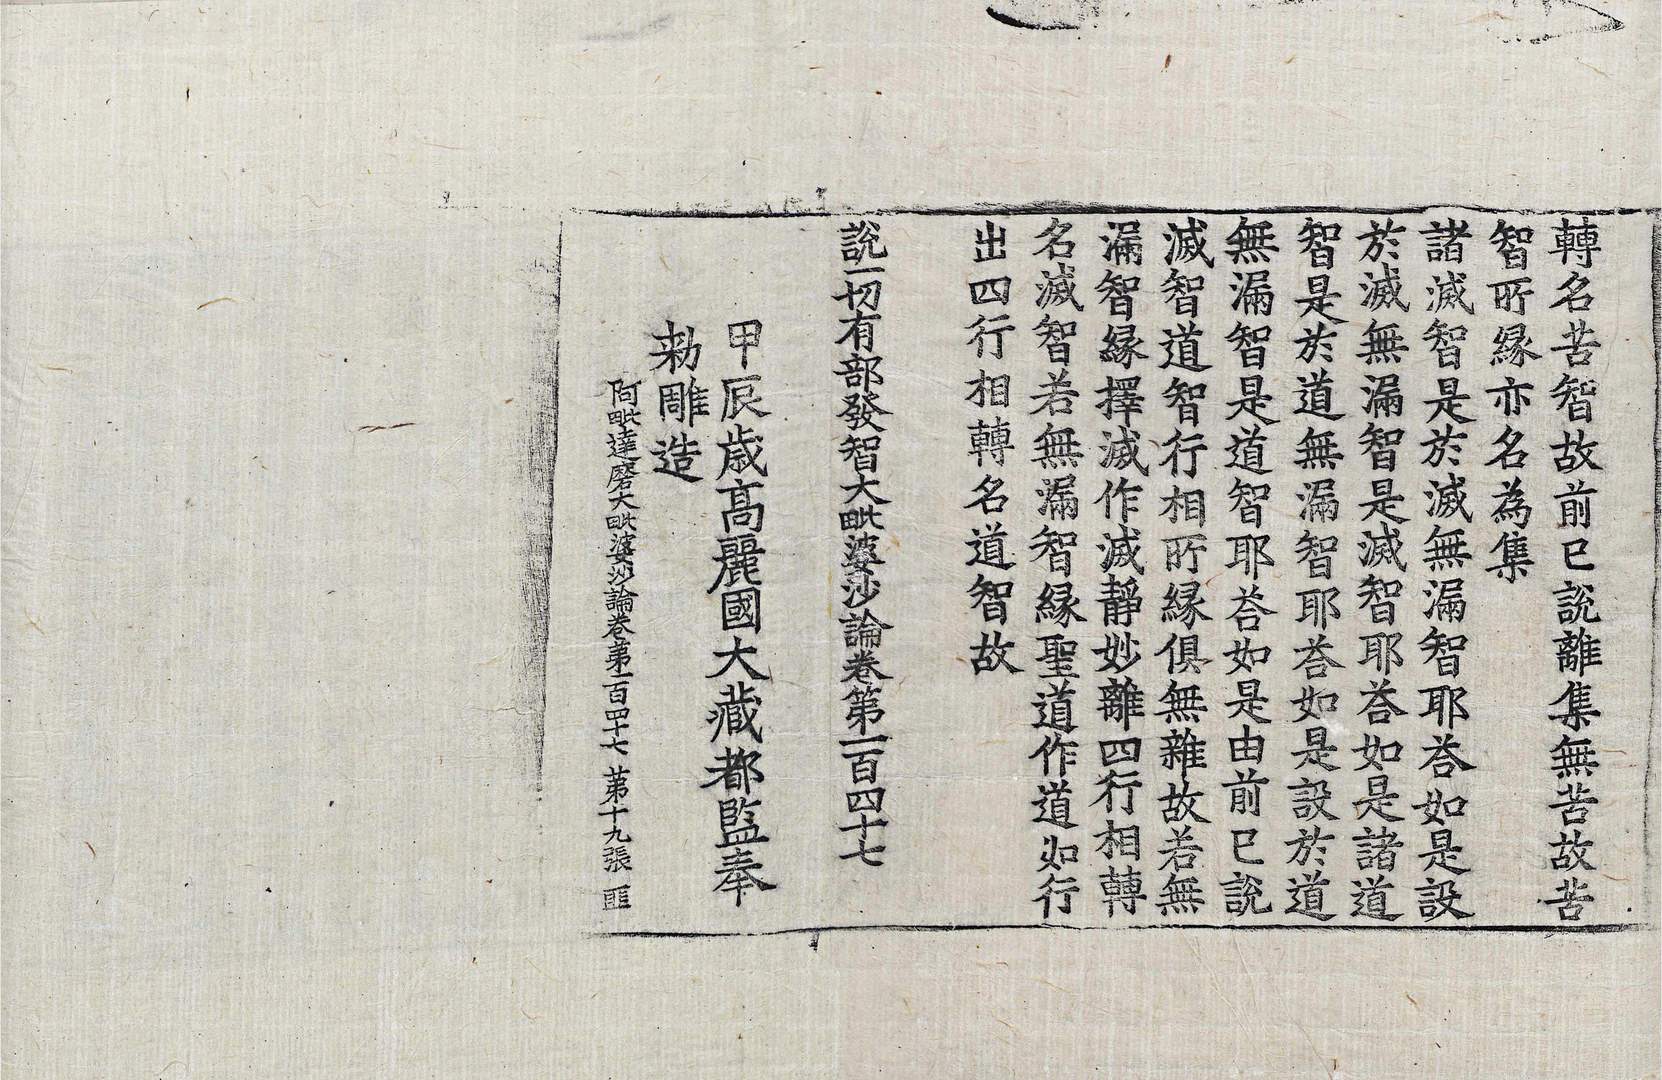 轉名苦智故前已說離集無苦故苦
智所緣亦名為集
諸滅智是於滅無漏智耶荅如是設
於滅無漏智是滅智耶荅如是諸道
智是於道無漏智耶荅如是設於道
無漏智是道智耶荅如是由前已說
滅智道智行相所緣俱無雜故若無
漏智緣擇滅作滅靜妙離四行相轉
名滅智若無漏智緣聖道作道如行
出四行相轉名道智故
說一切有部發智大毗婆沙論卷第一百四十七
甲辰歲高麗國大藏都監奉
勑雕造
阿毗達磨大毗婆沙論卷第一百四十七 第十九張 匪